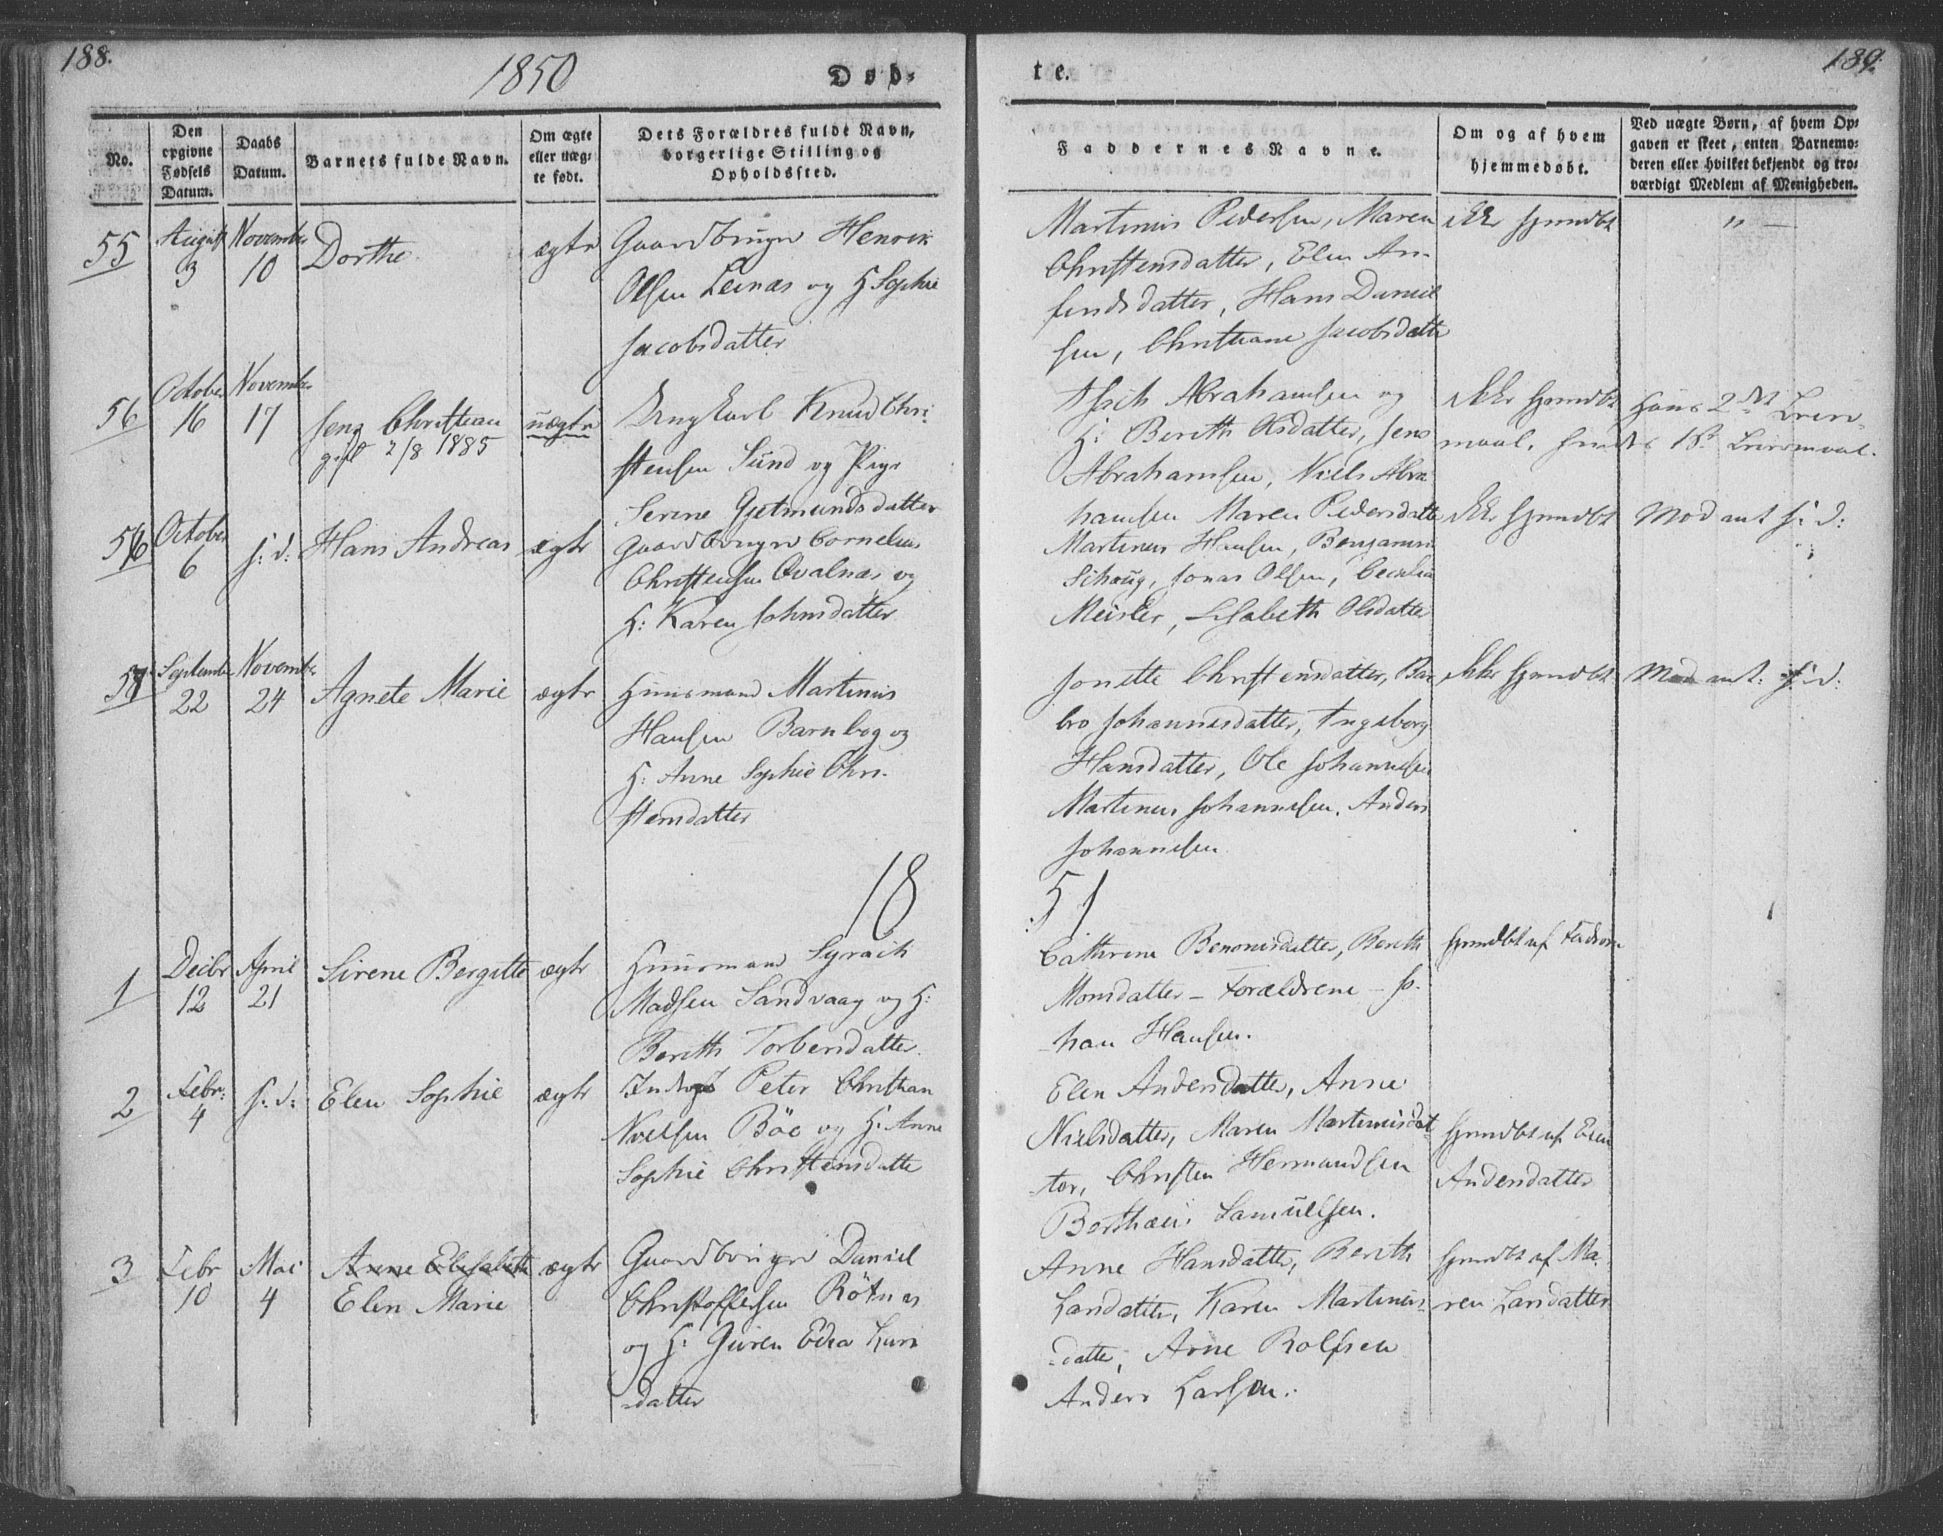 188.
1850
Døb-
No.
Den opgivne Fødsels Datum.
Daabs Datum.
Barnets fulde Navn.
Om ægte eller uægte født.
Dets Forældres fulde Navn, borgerlige Stilling og Opholdssted.
55
August 3
November 10
Dorthe
ægte
Gaardbruger Henrik
Olsen Leinæs og H Sophie
Jacobsdatter
56
October 16
November 17
Jens Christian
gift 2/8 1885
uægte
Ungkarl Knud Chri-
stensen Sund og Pige
Serine Gjetmundsdatter
56
October 6
s: d:
Hans Andreas
ægte
Gaardbruger Cornelius
Christensen Qvalnæs og
H: Karen Johnsdatter
57
September 22
November 24
Agnete Marie
ægte
Huusmand Martinus
Hansen Barnbog og
H: Anne Sophie Chri-
stensdatter
18
1
Decbr 12
April 21
Sirene Bergitte
ægte
Huusmand Syraih
Madsen Sandvaag og H:
Bereth Torbersdatter
2
Febr: 4
s: d:
Elen Sophie
ægte
Peter Christian
Noelsen Böe og H: Anne
Sophie Christensdatte
3
Febr 10
Mai 4
Anne Elisabeth
Elen Marie
ægte
Gaardbruger Daniel
Christoffersen Rötnæs
og H: Guren Edea Lars
datter
189.
te.
Faddernes Navne.
Om og af hvem hjemmedøbt.
Ved uægte Børn, af hvem Opgaven er skeet, enten Barnemoderen eller hvilket bekjendt og troværdigt Medlem af Menigheden.
Martinus Pedersen, Maren
Christensdatter, Elen Ar-
fendsdatter, Hans Daniel
sen, Christiane Jacobsdatte
ikke hjemdbt
" —
Abrahamsen og
H: Bereth Olsdatter, Jens
Abrahamsen, Niels Abra
hamsen Maren Pedersdatte
ikke hjemdbt
Hans 2det Leier-
maal, hendes 1ste Leiermaal.
Martinus Hansen, Benjamin
Schoug, Jonas Olsen, Cecelia
Meisler, Elisabeth Olsdatte
ikke hjemdbt
Mod ant s: d:
Jonette Christensdatter, Bar
bro Johannesdatter, Ingeborg
Hansdatter, Ole Johannesen
Martinus Johannesen. Anders
Johannesen
ikke hjemdbt
Mod ant: s: d:
51
Cathrine Benonisdatter, Bereth
Monsdatter – Forældrene – Jo-
han Hansen.
hjemdbt af Faderen
Elen Andersdatter, Anne
Nielsdatter, Maren Martinusdat
ter, Christen Hermandsen
Borthæus Samuelsen.
hjemdbt af Elen
Andersdatter
Anne Hansdatter, Bereth
Larsdatter, Karen Martinus-
datte, Arne Rolfsen
Anders Larsen.
hjemdbt af Ma-
ren Larsdatter